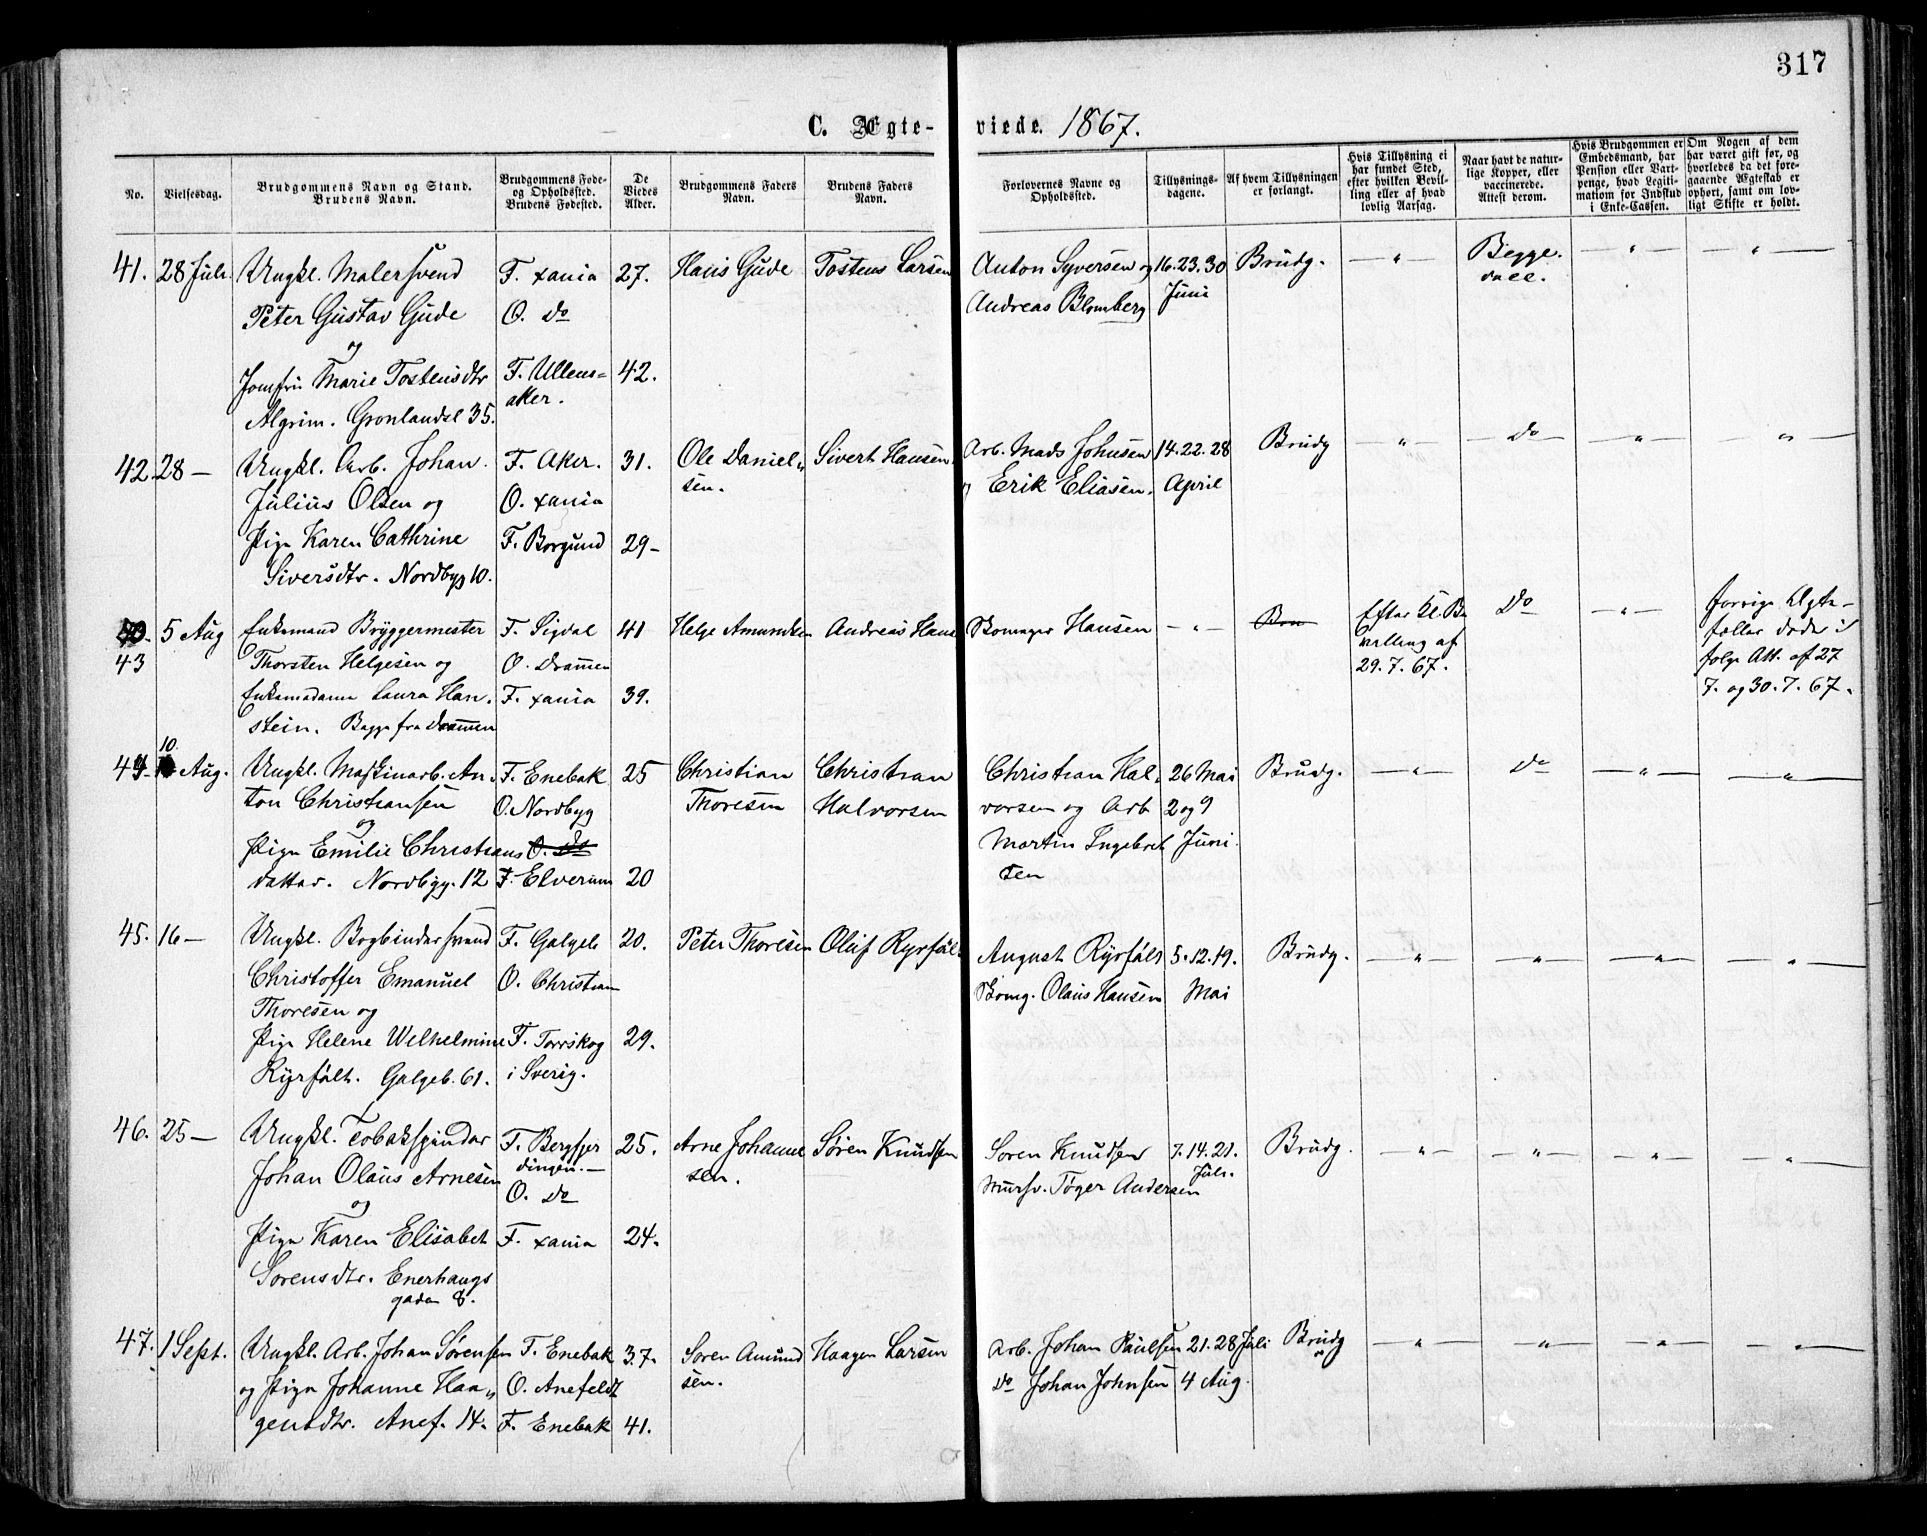 317
C. Ægte- viede. 1867.
No.
Vielsesdag.
Brudgommens Navn og Stand.
Brudens Navn.
Brudgommens Føde-
og Opholdssted.
Brudens Fødested.
De
Viedes
Alder.
Brudgommens Faders
Navn.
Brudens Faders
Navn.
Forlovernes Navne og
Opholdssted.
Tillysnings-
dagene.
Af hvem Tillysningen
er forlangt.
Hvis Tillysning ei
har fundet Sted,
efter hvilken Bevil-
ling eller af hvad
lovlig Aarsag.
Naar havt de natur-
lige Kopper, eller
vaccinerede.
Attest derom.
Hvis Brudgommen er
Embedsmand, har
Pension eller Vart-
penge, hvad Legiti-
mation for Indskud
i Enke-Cassen.
Om Nogen af dem
har været gift før, og
hvorledes da det fore-
gaaende Ægteskab er
ophørt, samt om lov-
ligt Skifte er holdt.
41. 28 Juli. Ungkl. Malersvend F. xania 27. Hans Gude Tostens Larsen Anton Syversen og 16. 23. 30 Brudg. — " — Begge. — " — — " —
Peter Gustav Gude O. Do Andreas Blomberg Juni vacc.
og
Jomfru Marie Tostensdtr F. Ullens= 42.
Algrim. Grønlandsl 35. aker.
42. 28 — Ungkl. Arb. Johan F. Aker. 31. Ole Daniel„ Sivert Hansen. Arb. Mads Johnsen 14. 22. 28 Brudg — " — Do — " — "
Julius Olsen og O. xania sen. og Erik Eliasen. April
Pige Karen Cathrine F. Borgund 29 -
Siversdtr. Nordbyg 10.
40. 5 Aug Enkemand Bryggermester F. Sigdal 41 Helge Amundsen Andreas Hans Hansen — " — Efter Kl. Be Do — " — forrige Ægte-
43 Thorsten Helgesen og O. Dramen villing af fæller døde i
Enkemadam Laura Han. F. xania 39. 29. 7. 67. følge Att. af 27
stein. Begge fra Dramen 7. og 30. 7. 67.
44 - 10 Aug. Ungkl. Maskinarb. An- F. Enebak 25 Christian Christian Christian Hal„ 26 Mai Brudg. — " — Do — " — — " —
ton Christiansen O. Nordbyg Thoresen Halvorsen vorsen og Arb 2 og 9
og Martin Ingebret Juni.
Pige Emilie Christians O. Do sen
datter. Nordbyg. 12 F. Elverum 20
45. 16 — Ungkl. Bogbindersvend F. Galgeb 20. Peter Thoresen Oluf Ryrfäl. August Ryrfält 5. 12. 19. Brudg. — " — — " — — " — — " —
Christoffer Emanuel O. Christian Olaus Hansen Mai
Thoresen og
Pige Helene Welhelmine F. Torrskog 29.
Ryrfält. Galgeb. 61. i Sverig.
46. 25 — Ungkl. Tobakspinder F. Bergsjer 25. Arne Johanne Søren Knudsen Søren Knudsen 7. 14. 21. Brudg. — " — — " — — " — — " —
Johan Olaus Arnesen dingen. — sen. Mursv. Tøger Andersen Juli.
og O. Do
Pige Karen Elisabet F. xania 24.
Sørensdtr. Enerhaugs
gaden 8.
47. 1 Sept. Ungkl. Arb. Johan Sørensen F. Enebak 37. Søren Amund Haagen Larsen Arb. Johan Paulsen 21. 28 Juli Brudg — " — — " — — " — — " —
og Pige Johanne Haa„ O. Anefeldt sen. Do Johan Johnsen 4 Aug.
gensdtr. Anef. 14. F. Enebak 41.